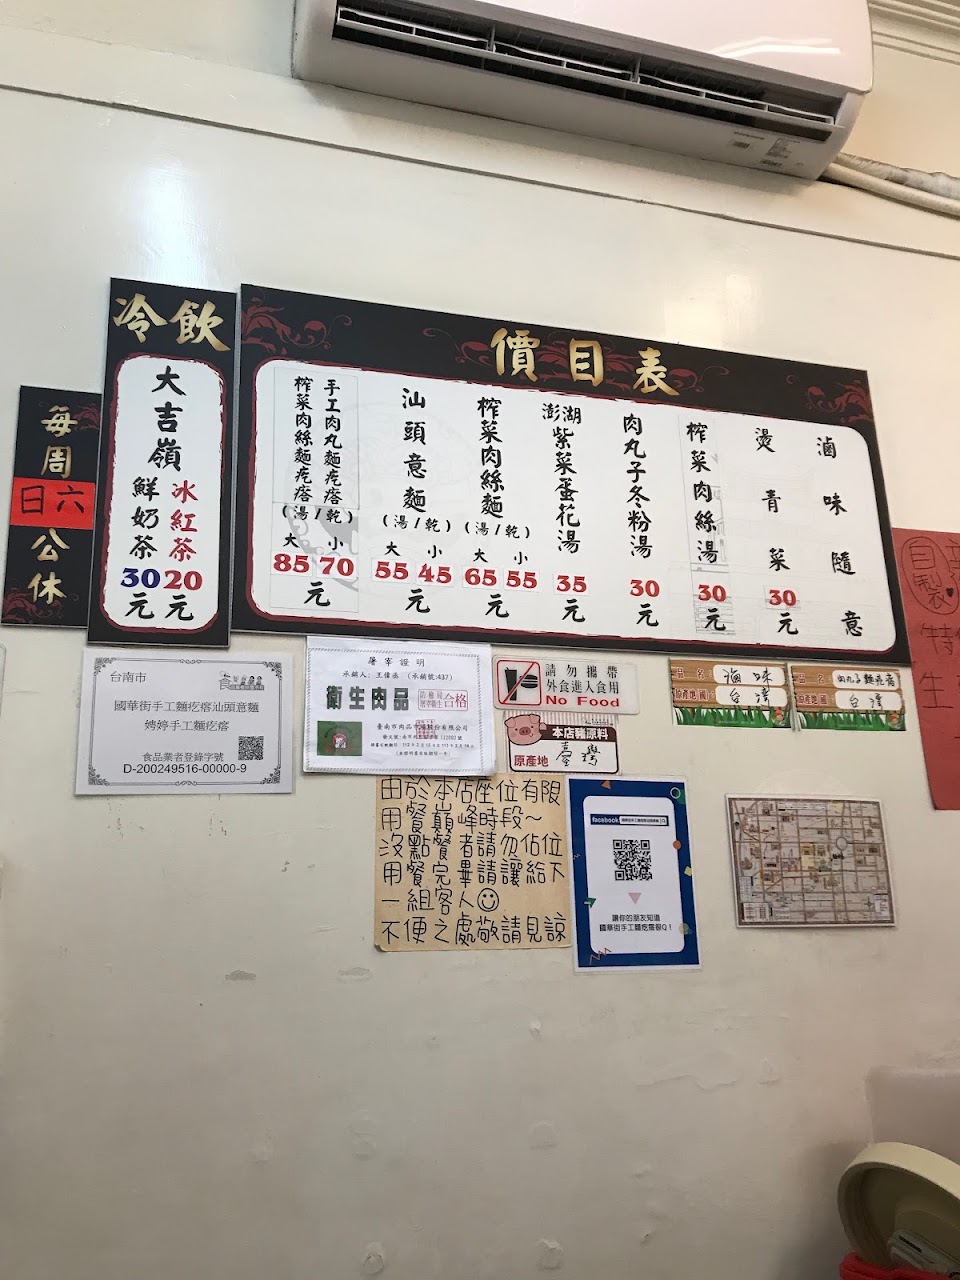 每周
日六
公休
冷飲
大吉嶺
冰紅茶
20
元
鮮奶茶
30
元
價目表
滷味隨意
燙青菜
30
元
榨菜肉絲湯
30
元
肉丸子冬粉湯
30
元
澎湖
紫菜蛋花湯
35
元
榨菜肉絲麵
(湯/乾)
大 小
65 55
元
汕頭意麵
(湯/乾)
大 小
55 45
元
手工肉丸麵疙瘩
榨菜肉絲麵疙瘩
(湯/乾)
大 小
85 70
元
台南市
國華街手工麵疙瘩汕頭意麵
娉婷手工麵疙瘩
食品業者登錄字號
D-200249516-00000-9
屠宰證明
承銷人：王偉丞 (承銷號:437)
衛生肉品
合格
請勿攜帶
外食進入食用
No Food
本店豬原料
原產地 臺灣
品名 滷味
原產地(國) 台灣
品名 肉丸子麵疙瘩
原產地(國) 台灣
由於本店座位有限
用餐巔峰時段~
沒點餐者請勿佔位
用餐完畢請讓給下
一組客人
不便之處敬請見諒
facebook
讓你的朋友知道
國華街手工麵疙瘩很Q！
自製
特
生